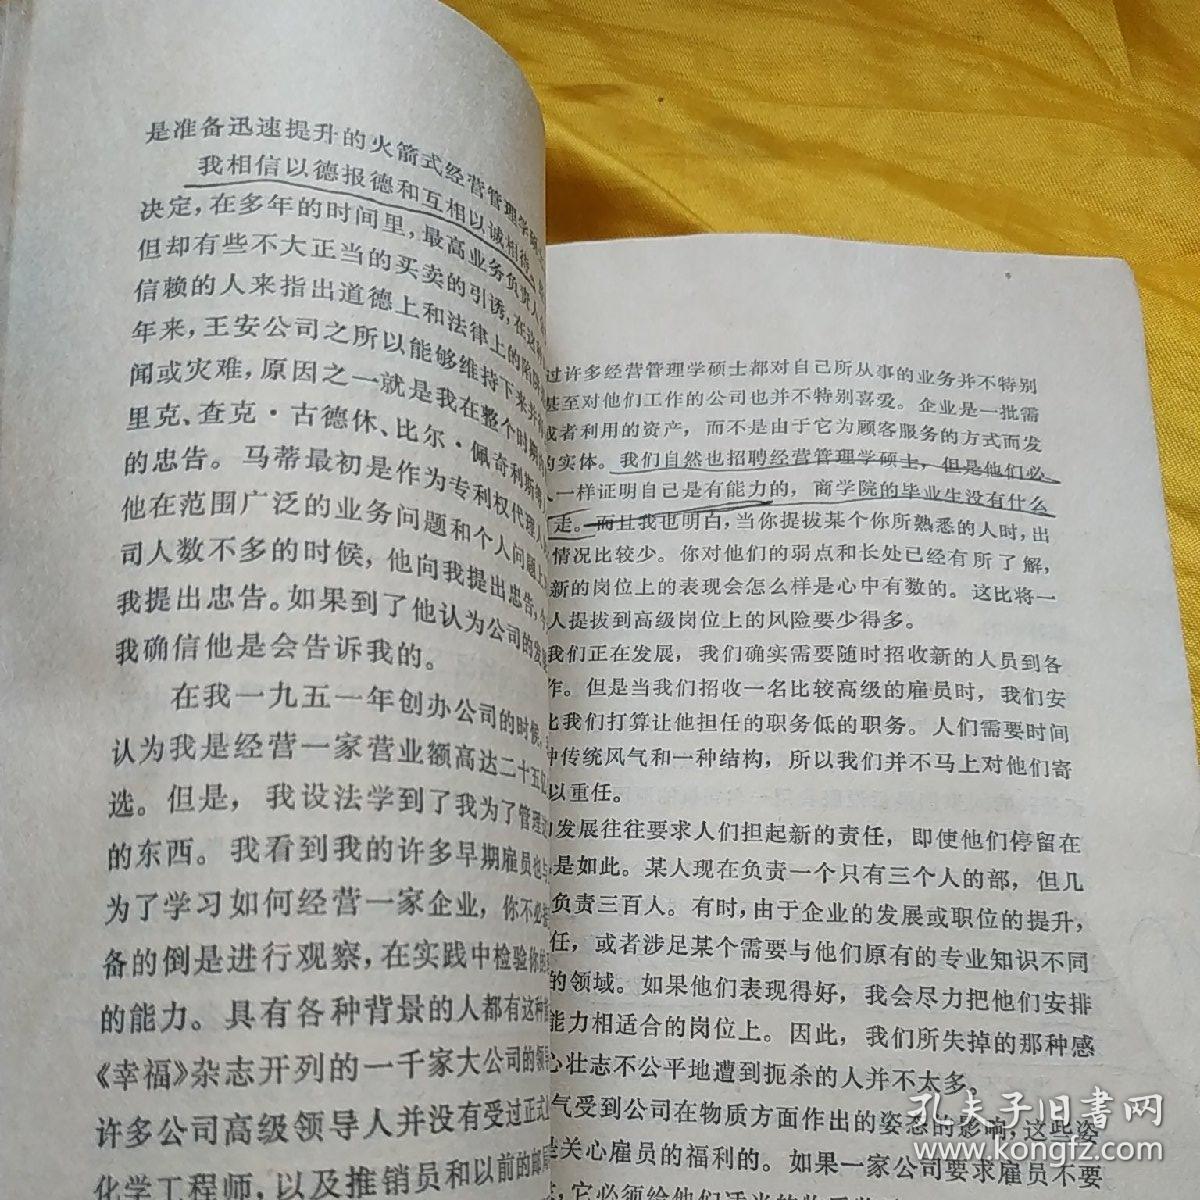 是准备迅速提升的火箭式经营管理学硕
我相信以德报德和互相以诚相待。
决定，在多年的时间里，最高业务负责人
但却有些不大正当的买卖的引诱，在这种
信赖的人来指出道德上和法律上的陷阱
年来，王安公司之所以能够维持下来并
闻或灾难，原因之一就是我在整个时期
里克、查克·古德休、比尔·佩奇利斯
的忠告。马蒂最初是作为专利权代理人
他在范围广泛的业务问题和个人问题上
司人数不多的时候，他向我提出忠告，今
我提出忠告。如果到了他认为公司的发展
我确信他是会告诉我的。
在我一九五一年创办公司的时候，
认为我是经营一家营业额高达二十五亿
选。但是，我设法学到了我为了管理
的东西。我看到我的许多早期雇员也
为了学习如何经营一家企业，你不必
备的倒是进行观察，在实践中检验你
的能力。具有各种背景的人都有这种
《幸福》杂志开列的一千家大公司的领导
许多公司高级领导人并没有受过正式
化学工程师，以及推销员和以前的邮局
过许多经营管理学硕士都对自己所从事的业务并不特别
甚至对他们工作的公司也并不特别喜爱。企业是一批需
或者利用的资产，而不是由于它为顾客服务的方式而发
的实体。我们自然也招聘经营管理学硕士，但是他们必
人一样证明自己是有能力的，商学院的毕业生没有什么
走。而且我也明白，当你提拔某个你所熟悉的人时，出
情况比较少。你对他们的弱点和长处已经有所了解，
新的岗位上的表现会怎么样是心中有数的。这比将一
人提拔到高级岗位上的风险要少得多。
我们正在发展，我们确实需要随时招收新的人员到各
作。但是当我们招收一名比较高级的雇员时，我们安
比我们打算让他担任的职务低的职务。人们需要时间
种传统风气和一种结构，所以我们并不马上对他们寄
以重任。
的发展往往要求人们担起新的责任，即使他们停留在
是如此。某人现在负责一个只有三个人的部，但几
负责三百人。有时，由于企业的发展或职位的提升，
任，或者涉足某个需要与他们原有的专业知识不同
的领域。如果他们表现得好，我会尽力把他们安排
能力相适合的岗位上。因此，我们所失掉的那种感
心壮志不公平地遭到扼杀的人并不太多。
气受到公司在物质方面作出的姿态的影响，这些姿
是关心雇员的福利的。如果一家公司要求雇员不要
，它必须给他们适当的
孔夫子旧书网
www.kongfz.com